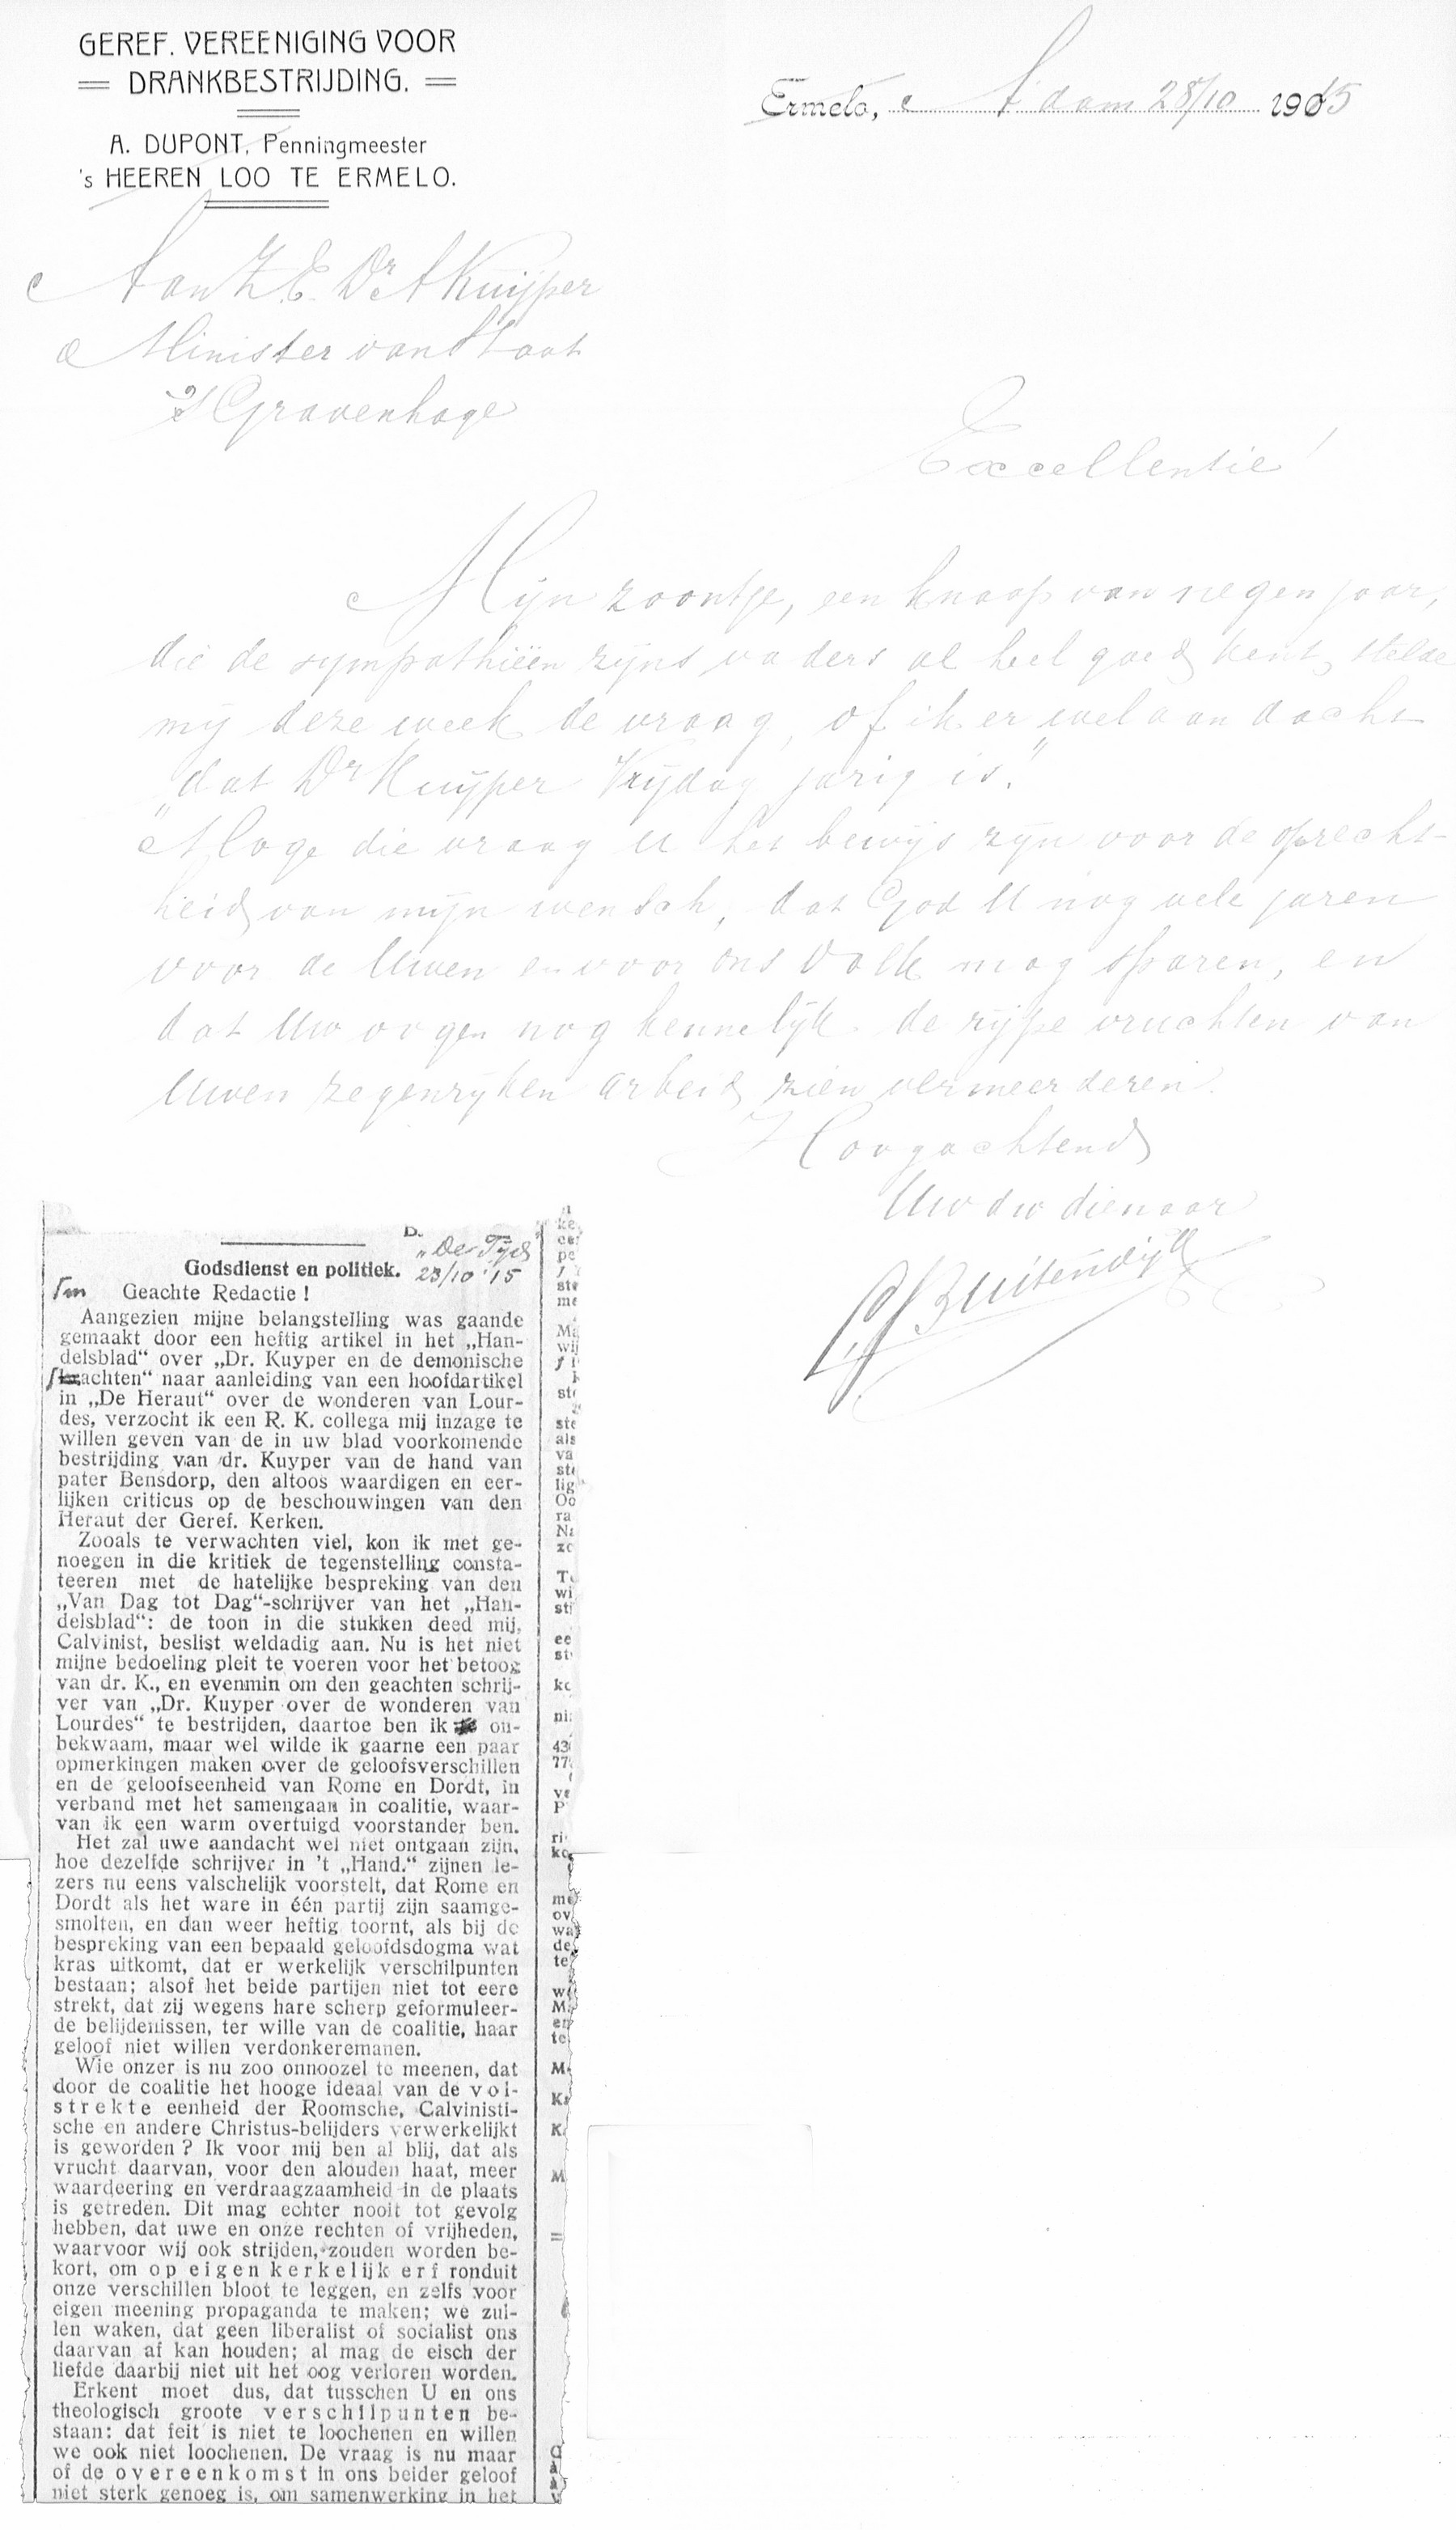 GEREF. VEREENIGING VOOR
DRANKBESTRIJDING.
A. DUPONT, Penningmeester
's HEEREN LOO TE ERMELO.
Ermelo, A'dam 28/10 1915
Aan Z.E. Dr A Kuijper
Minister van Staat
's Gravenhage
Excellentie!
Mijn zoontje, een knaap van negen jaar,
die de sympathiëen zijns vaders al heel goed kent, stelde
mij deze week de vraag, of ik er wel aan dacht
„dat Dr Kuijper Vrijdag jarig is."
Moge die vraag U het bewijs zijn voor de oprecht-
heid van mijn wensch, dat God U nog vele jaren
voor de Uwen en voor ons Volk mag sparen, en
dat Uw oogen nog kennelijk de rijpe vruchten van
Uwen zegenrijken arbeid zien vermeerderen.
Hoogachtend
Uw dw dienaar
Buitendijk
D.
„De Tijd
23/10 '15
Godsdienst en politiek.
Geachte Redactie!
Aangezien mijne belangstelling was gaande
gemaakt door een heftig artikel in het „Han-
delsblad" over „Dr. Kuyper en de demonische
achten" naar aanleiding van een hoofdartikel
in „De Heraut" over de wonderen van Lour-
des, verzocht ik een R. K. collega mij inzage te
willen geven van de in uw blad voorkomende
bestrijding van dr. Kuyper van de hand van
pater Bensdorp, den altoos waardigen en eer-
lijken criticus op de beschouwingen van den
Heraut der Geref. Kerken.
Zooals te verwachten viel, kon ik met ge-
noegen in die kritiek de tegenstelling consta-
teeren met de hatelijke bespreking van den
„Van Dag tot Dag"-schrijver van het „Han-
delsblad": de toon in die stukken deed mij,
Calvinist, beslist weldadig aan. Nu is het niet
mijne bedoeling pleit te voeren voor het betoog
van dr. K., en evenmin om den geachten schrij-
ver van „Dr. Kuyper over de wonderen van
Lourdes" te bestrijden, daartoe ben ik on-
bekwaam, maar wel wilde ik gaarne een paar
opmerkingen maken over de geloofsverschillen
en de geloofseenheid van Rome en Dordt, in
verband met het samengaan in coalitie, waar-
van ik een warm overtuigd voorstander ben.
Het zal uwe aandacht wel niet ontgaan zijn,
hoe dezelfde schrijver in 't „Hand." zijnen le-
zers nu eens valschelijk voorstelt, dat Rome en
Dordt als het ware in één partij zijn saamge-
smolten, en dan weer heftig toornt, als bij de
bespreking van een bepaald geloofdsdogma wat
kras uitkomt, dat er werkelijk verschilpunten
bestaan; alsof het beide partijen niet tot eere
strekt, dat zij wegens hare scherp geformuleer-
de belijdenissen, ter wille van de coalitie, haar
geloof niet willen verdonkeremanen.
Wie onzer is nu zoo onnoozel te meenen, dat
door de coalitie het hooge ideaal van de vol-
strekte eenheid der Roomsche, Calvinisti-
sche en andere Christus-belijders verwerkelijkt
is geworden? Ik voor mij ben al blij, dat als
vrucht daarvan, voor den alouden haat, meer
waardeering en verdraagzaamheid in de plaats
is getreden. Dit mag echter nooit tot gevolg
hebben, dat uwe en onze rechten of vrijheden,
waarvoor wij ook strijden, zouden worden be-
kort, om op eigen kerkelijk erf ronduit
onze verschillen bloot te leggen, en zelfs voor
eigen meening propaganda te maken; we zul-
len waken, dat geen liberalist of socialist ons
daarvan af kan houden; al mag de eisch der
liefde daarbij niet uit het oog verloren worden.
Erkent moet dus, dat tusschen U en ons
theologisch groote verschilpunten be-
staan: dat feit is niet te loochenen en willen
we ook niet loochenen. De vraag is nu maar
of de overeenkomst in ons beider geloof
niet sterk genoeg is, om samenwerking in het